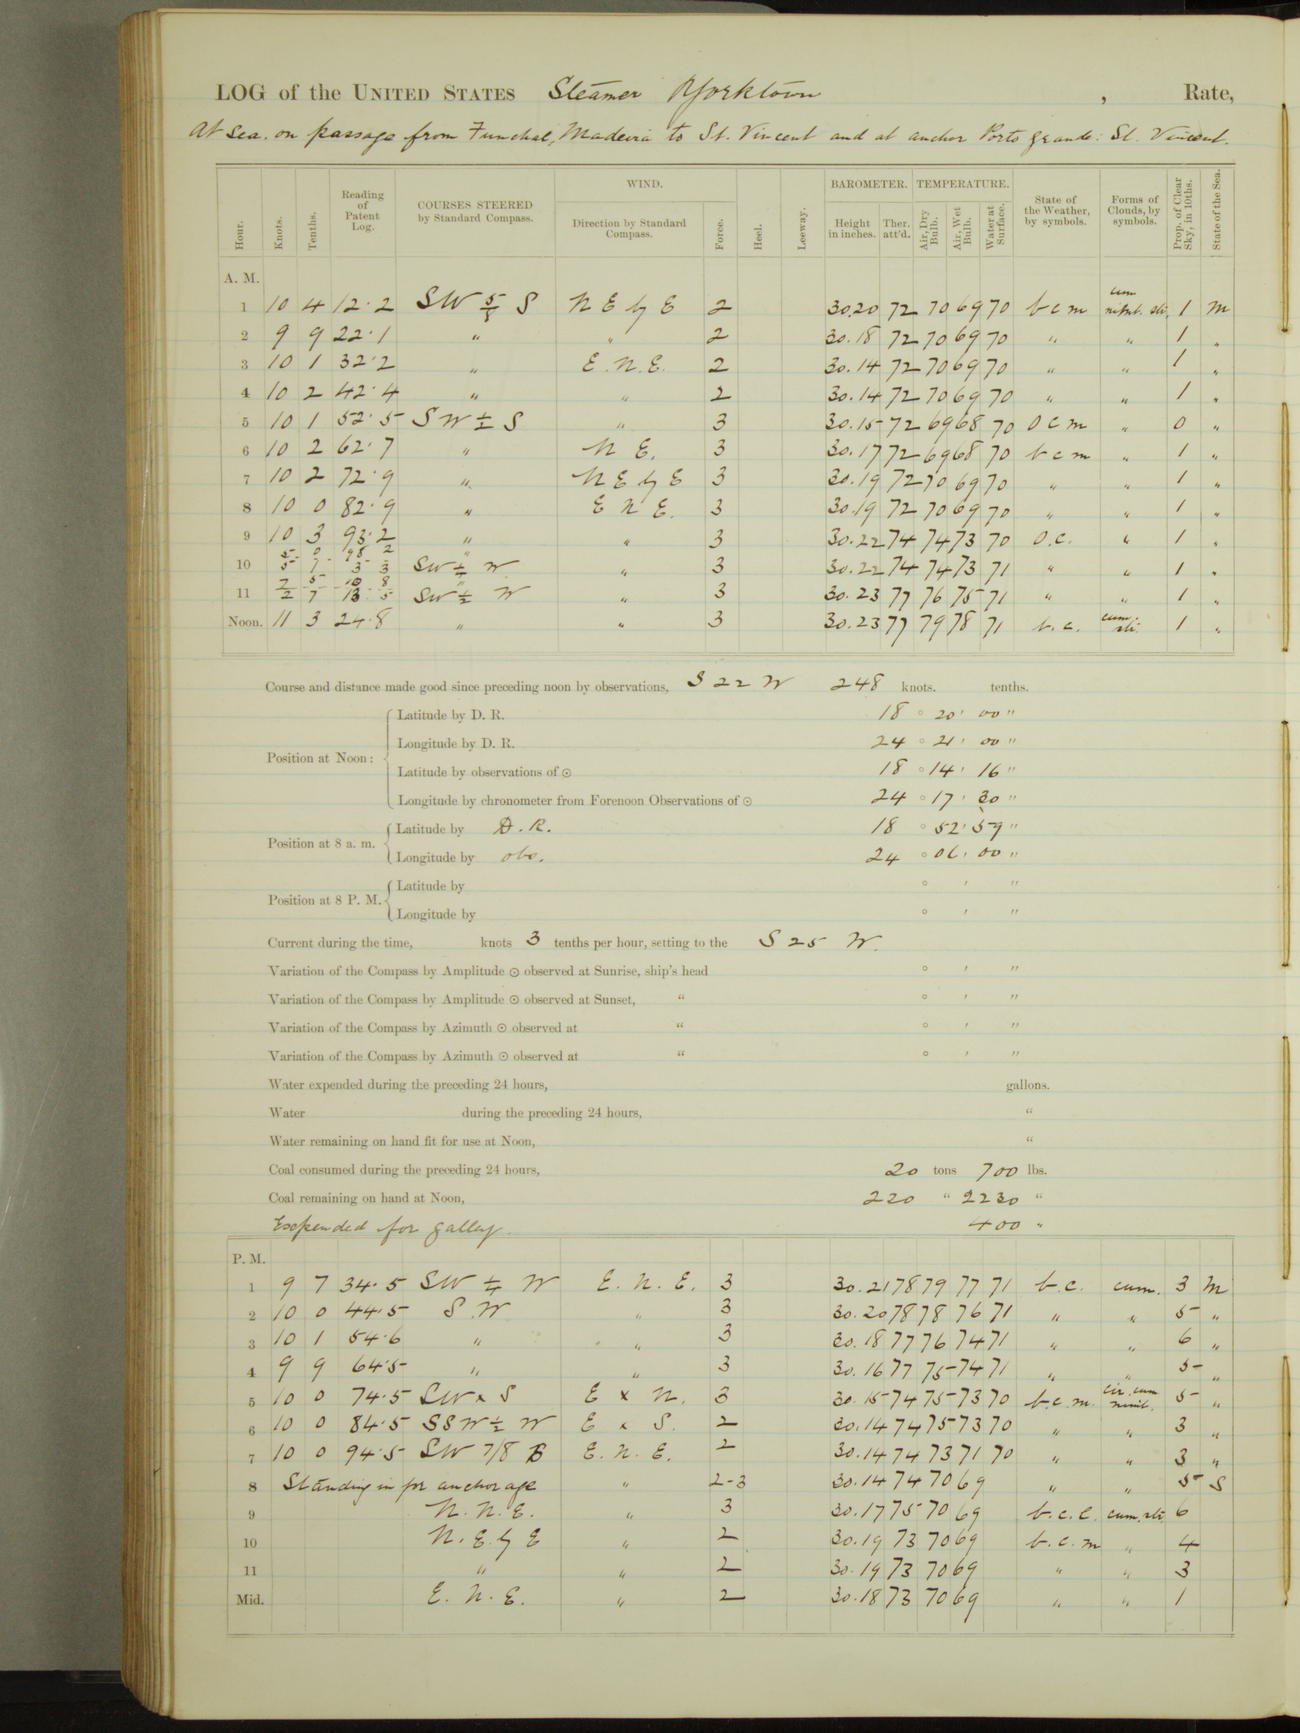 LOG of the UNITED STATES Steamer Yorktown , Rate,
At sea, on passage from Funchal, Madeira to St. Vincent and at anchor Porto grande: St. Vincent.
Hour. Knots. Tenths. Reading of Patent Log. COURSES STEERED by Standard Compass. WIND. Direction by Standard Compass. Force. Heel. Leeway. BAROMETER. Height in inches. Ther. att'd. TEMPERATURE. Air, Dry Bulb. Air, Wet Bulb. Water at Surface. State of the Weather, by symbols. Forms of Clouds, by symbols. Prop. of Clear Sky, in 10ths. State of the Sea.
A. M.
1 10 4 12.2 SW S N E by E 2 30.20 72 70 69 70 b c m cum nimb. str. 1 M
2 9 9 22.1 " " 2 30.18 72 70 69 70 " " 1 "
3 10 1 32.2 " E.N.E. 2 30.14 72 70 69 70 " " 1 "
4 10 2 42.4 " " 2 30.14 72 70 69 70 " " 1 "
5 10 1 52.5 SW S " 3 30.15 72 69 68 70 O c m " 0 "
6 10 2 62.7 " N E. 3 30.17 72 69 68 70 b c m " 1 "
7 10 2 72.9 " N E by E 3 30.19 72 70 69 70 " " 1 "
8 10 0 82.9 " E N E. 3 30.19 72 70 69 70 " " 1 "
9 10 3 93.2 " " 3 30.22 74 74 73 70 O.c. " 1 "
5 0 98 2 "
10 5 1 3 3 SW W " 3 30.22 74 74 73 71 " " 1 "
7 5 10 8 "
11 2 7 13.5 SW W " 3 30.23 77 76 75 71 " " 1 "
Noon. 11 3 24.8 " " 3 30.23 77 79 78 71 b.c. cum. str. 1 "
Course and distance made good since preceding noon by observations, S 22 W 248 knots. tenths.
Position at Noon:
Latitude by D. R. 18 ° 20 ' 00 "
Longitude by D. R. 24 ° 21 ' 00 "
Latitude by observations of ☉ 18 ° 14 ' 16 "
Longitude by chronometer from Forenoon Observations of ☉ 24 ° 17 ' 30 "
Position at 8 a. m.
Latitude by D.R. 18 ° 52 ' 59 "
Longitude by obs. 24 ° 06 ' 00 "
Position at 8 P. M.
Latitude by ° ' "
Longitude by ° ' "
Current during the time, knots 3 tenths per hour, setting to the S 25 W.
Variation of the Compass by Amplitude ☉ observed at Sunrise, ship's head ° ' "
Variation of the Compass by Amplitude ☉ observed at Sunset, " ° ' "
Variation of the Compass by Azimuth ☉ observed at " ° ' "
Variation of the Compass by Azimuth ☉ observed at " ° ' "
Water expended during the preceding 24 hours, gallons.
Water during the preceding 24 hours, "
Water remaining on hand fit for use at Noon, "
Coal consumed during the preceding 24 hours, 20 tons 700 lbs.
Coal remaining on hand at Noon, 220 " 2230 "
Expended for galley. 400 "
P. M.
1 9 7 34.5 SW W E. N. E. 3 30.21 78 79 77 71 b.c. cum. 3 M
2 10 0 44.5 S.W " 3 30.20 78 78 76 71 " " 5 "
3 10 1 54.6 " " 3 30.18 77 76 74 71 " " 6 "
4 9 9 64.5 " " 3 30.16 77 75 74 71 " " 5 "
5 10 0 74.5 SW x S E x N. 3 30.15 74 75 73 70 b.c.m. cir. cum nimb. 5 "
6 10 0 84.5 SSW ½ W E x S. 2 30.14 74 75 73 70 " " 3 "
7 10 0 94.5 SW 7/8 E. N. E. 2 30.14 74 73 71 70 " " 3 "
8 Standing in for anchorage " 2-3 30.14 74 70 69 " " 5 S
9 N. N. E. " 3 30.17 75 70 69 b.c.c. cum. str. 6
10 N. E. by E " 2 30.19 73 70 69 b.c.m " 4
11 " " 2 30.19 73 70 69 " " 3
Mid. E. N. E. " 2 30.18 73 70 69 " " 1